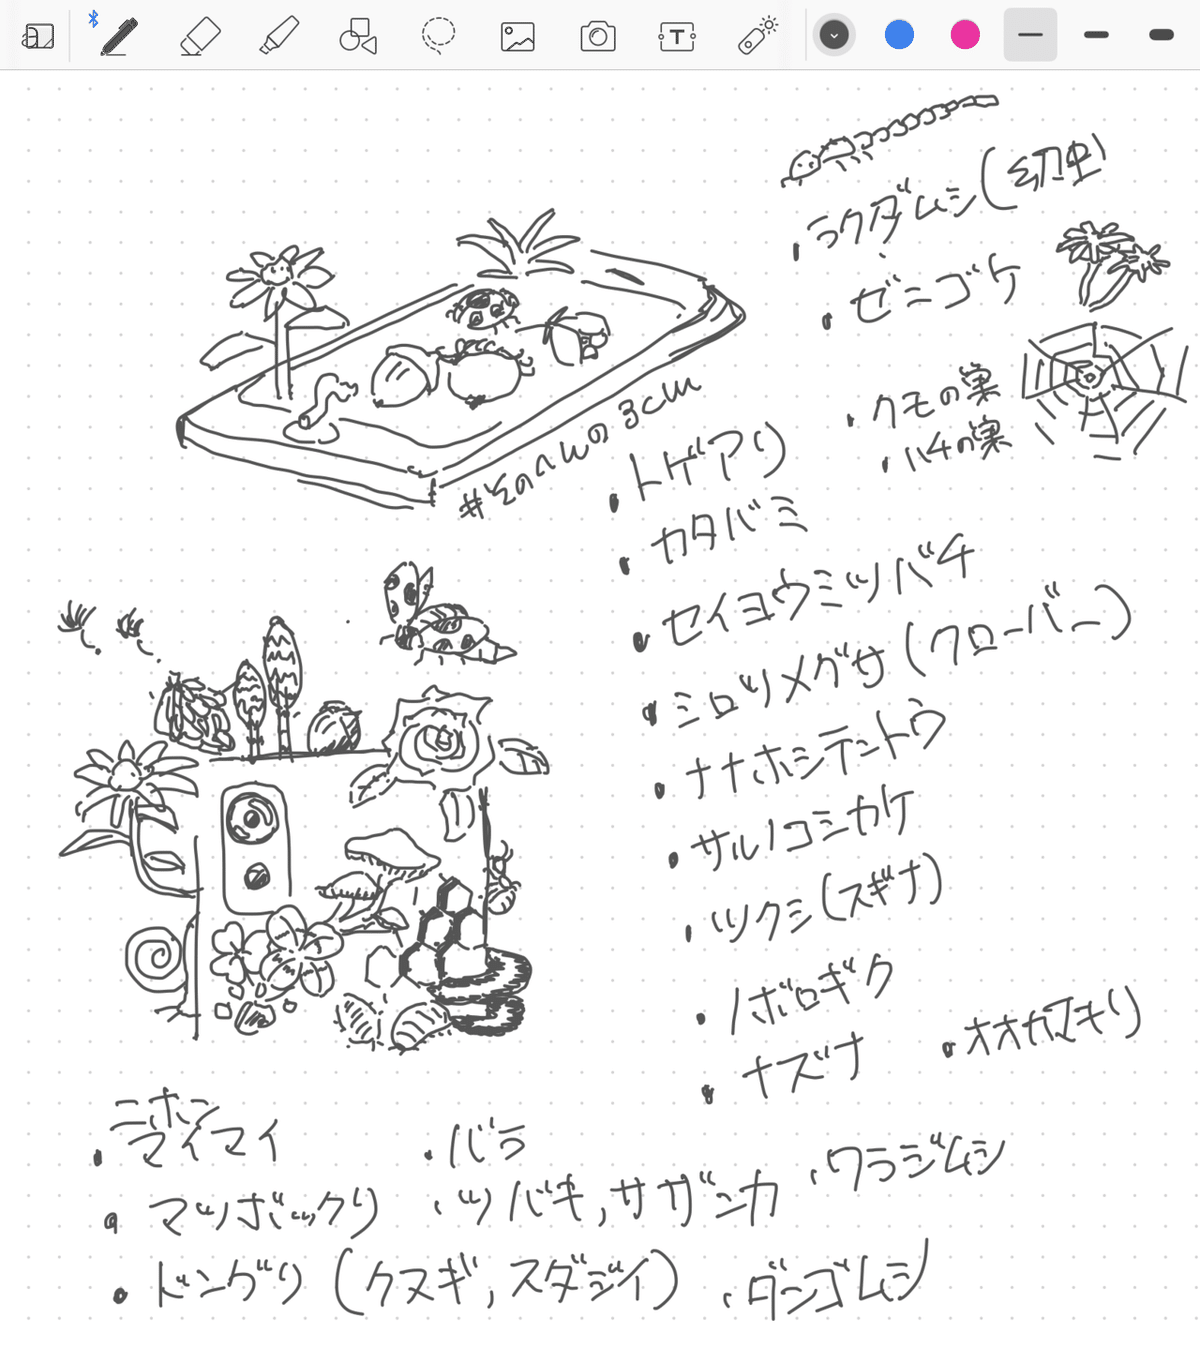 ・ラクダムシ(幼虫)
・ゼニゴケ
・クモの巣
・ハチの巣
#そのへんの3cm
・トゲアリ
・カタバミ
・セイヨウミツバチ
・シロツメグサ(クローバー)
・ナナホシテントウ
・サルノコシカケ
・ツクシ(スギナ)
・ノボロギク
・ナズナ
・オオカマキリ
・ニホンマイマイ
・バラ
・ワラジムシ
・マツボックリ
・ツバキ,サザンカ
・ドングリ(クヌギ,スダジイ)
・ダンゴムシ
T